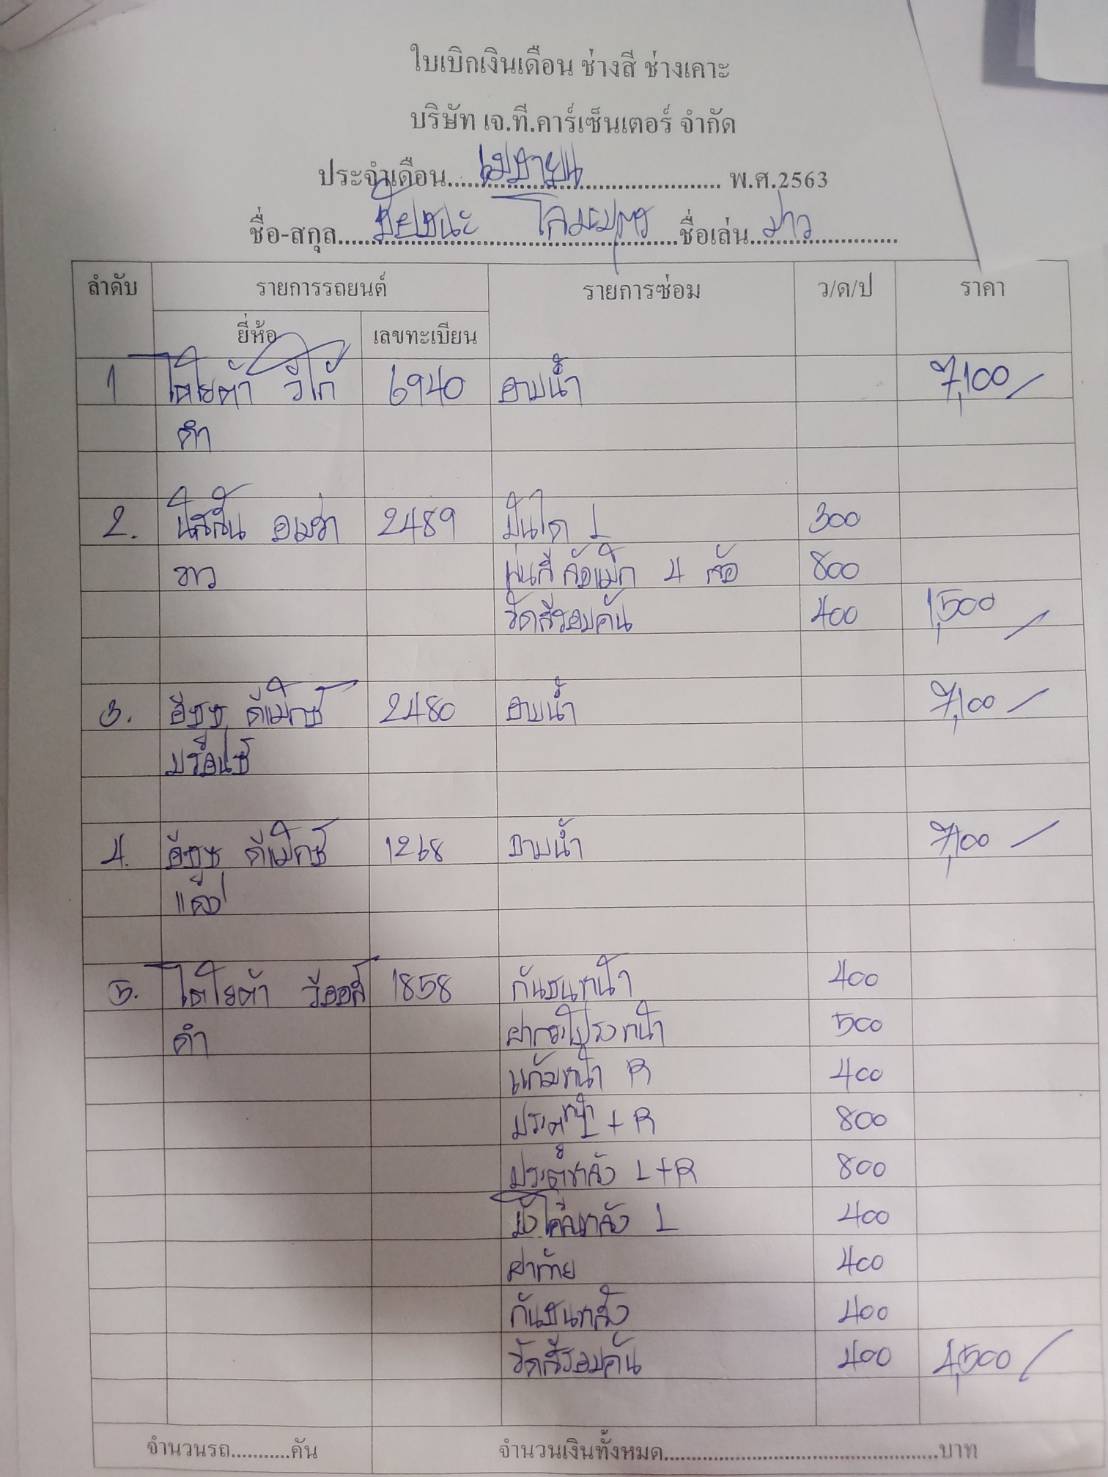 ใบเบิกเงินเดือน ช่างสี ช่างเคาะ
บริษัท เจ.ที.คาร์เซ็นเตอร์ จำกัด
ประจำเดือน....เมษายน.... พ.ศ.2563
ชื่อ-สกุล....ชัยชนะ....ชื่อเล่น....
ลำดับ รายการรถยนต์ รายการซ่อม ว/ด/ป ราคา
ยี่ห้อ เลขทะเบียน
1 โตโยต้า วีโก้ 6940 อาบน้ำ 7,100/
ดำ
2. นิสสัน อเมร่า 2489 บันได L 300
ขาว พ่นสี ล้อแม็ก 4 ล้อ 800
ขัดสีรอบคัน 400 1,500/
3. อีซูซุ ดีแม็กซ์ 2480 อาบน้ำ 7,100/
บรอนซ์
4. อีซูซุ ดีแม็กซ์ 1268 อาบน้ำ 7,100/
แดง
5. โตโยต้า วีออส 1858 กันชนหน้า 400
ดำ ฝากระโปรงหน้า 500
แก้มหน้า R 400
ประตูหน้า L+R 800
ประตูหลัง L+R 800
บังโคลนหลัง L 400
ฝาท้าย 400
กันชนหลัง 400
ขัดสีรอบคัน 400 4,500/
จำนวนรถ...........คัน จำนวนเงินทั้งหมด..................................................บาท